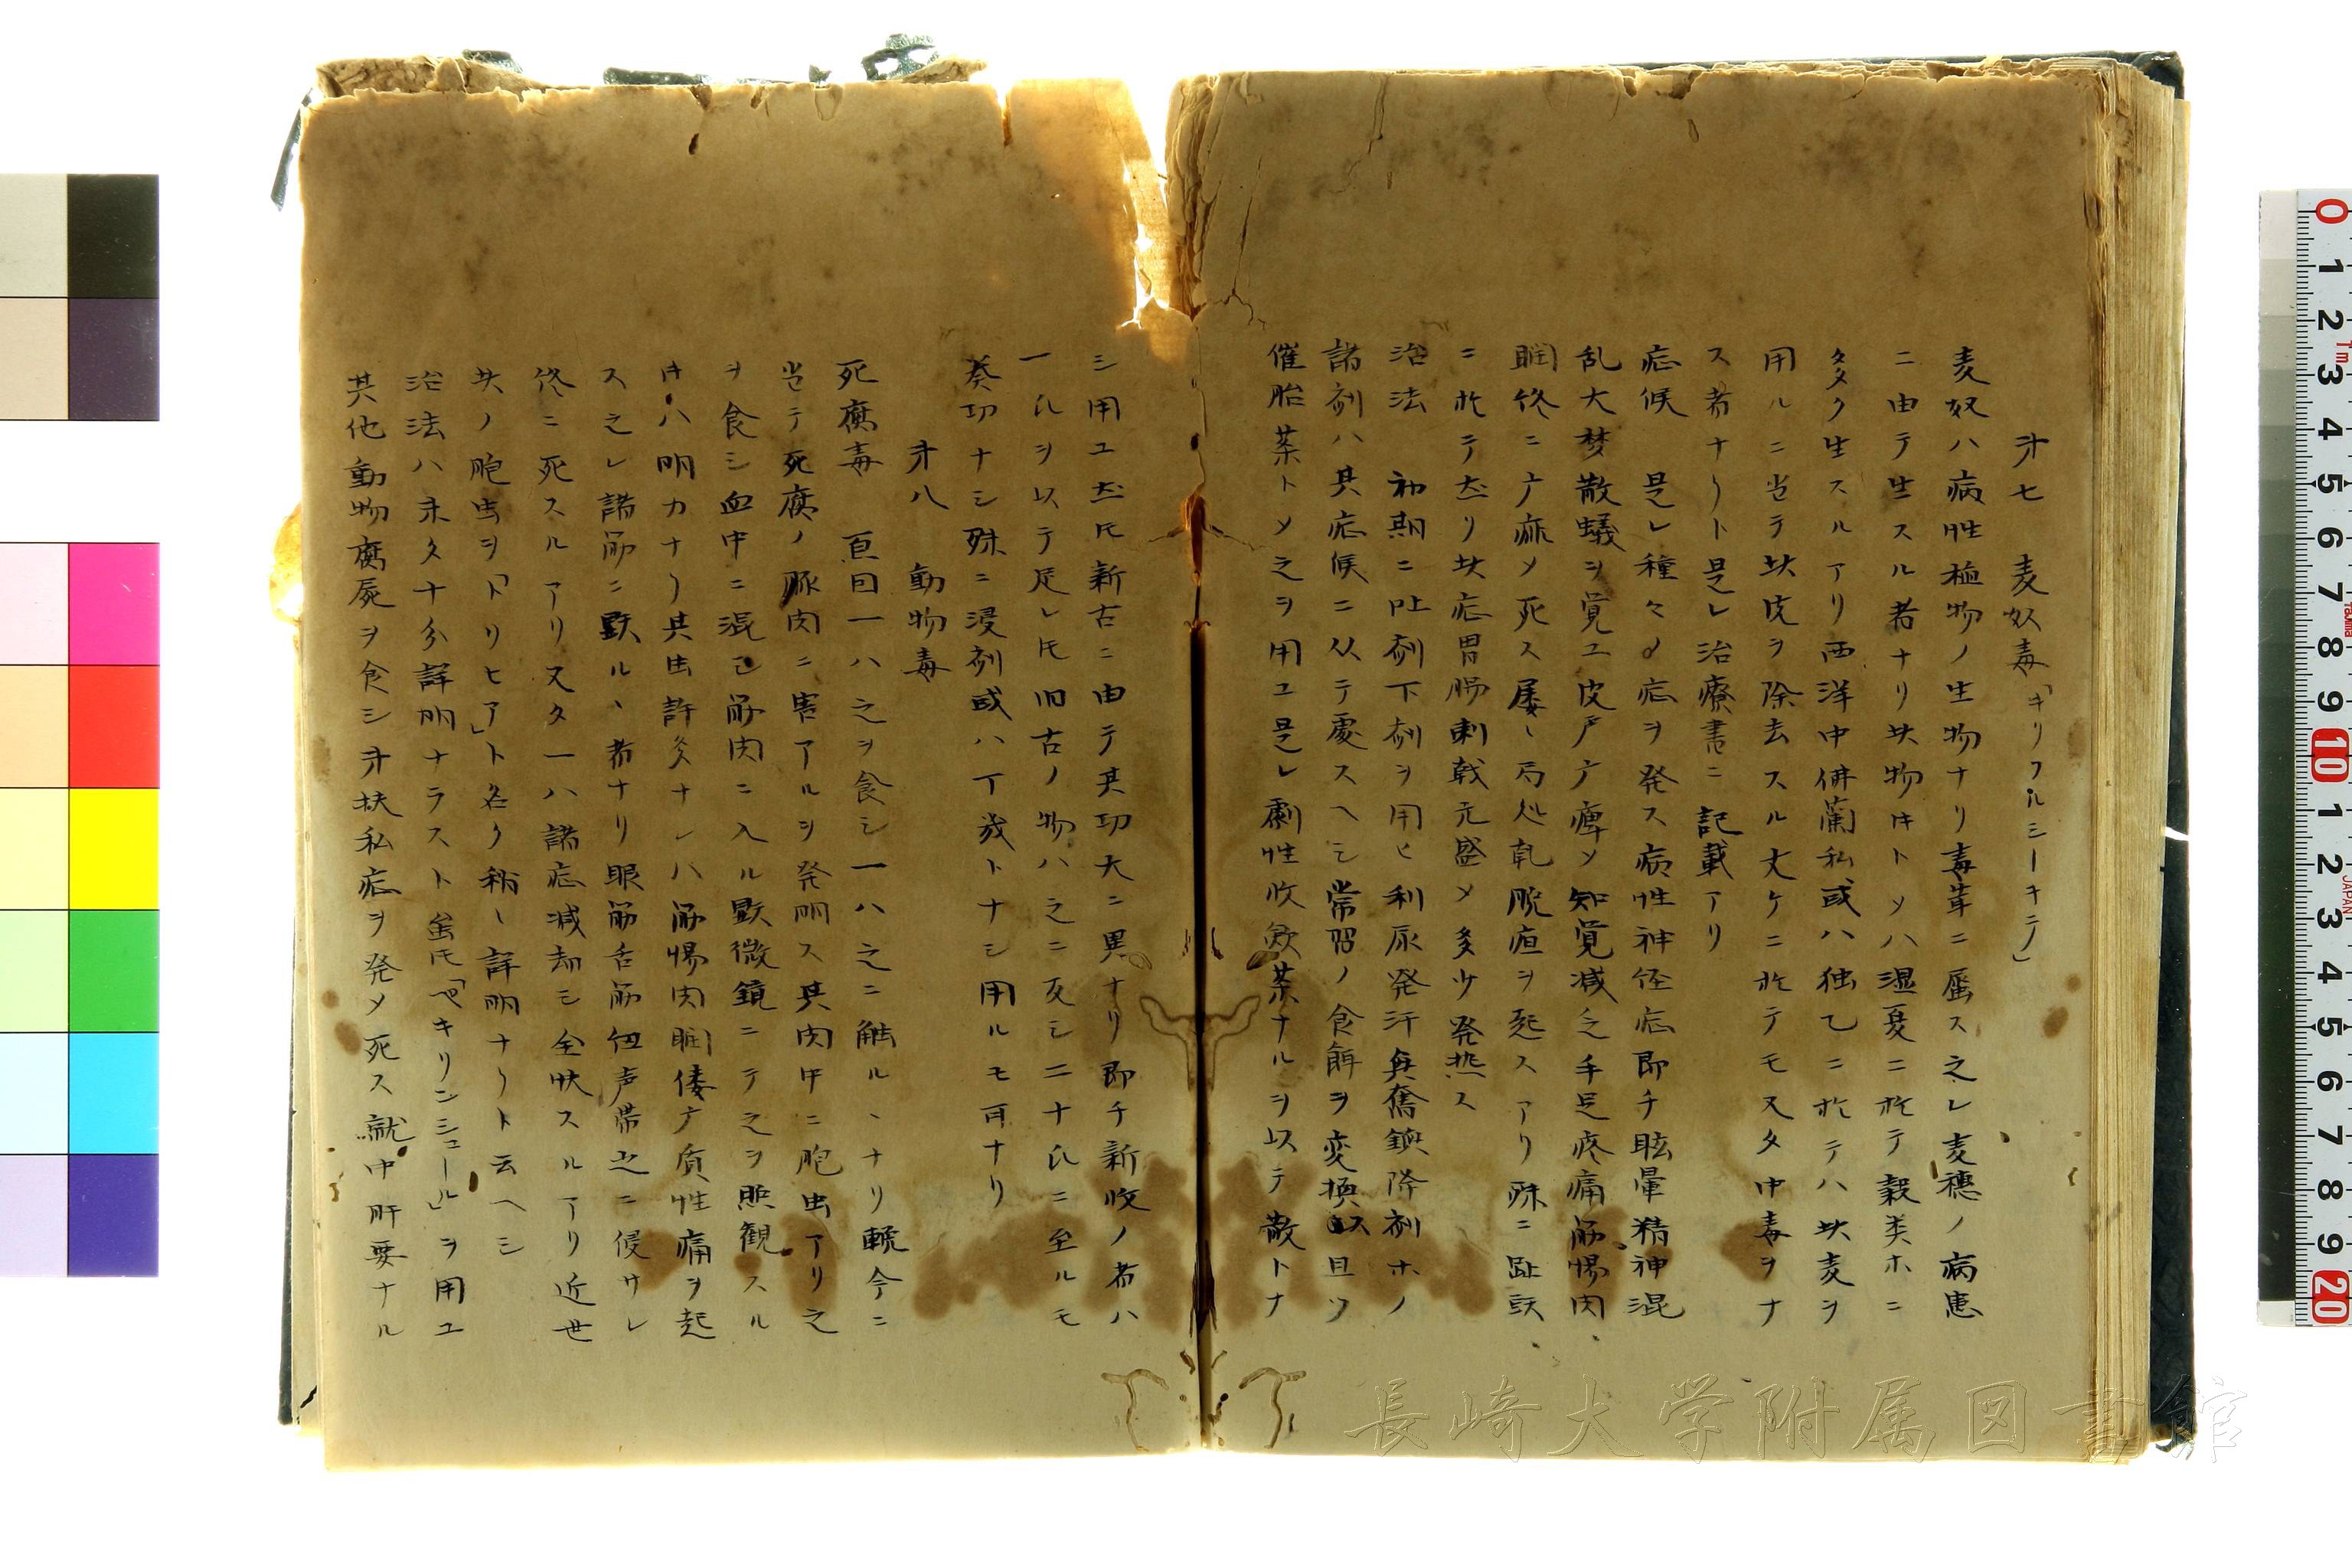 才七 麦奴毒「キリフルシーキテ」
麦奴ハ病性植物ノ生物ナリ毒茸ニ属ス之レ麦穗ノ病患
ニ由テ生スル者ナリ此物ヰトメハ湿夏ニ於テ穀类ホニ
タタク生スルアリ西洋中佛蘭私或ハ独乙ニ於テハ此麦ヲ
用ルニ当テ此皮ヲ除去スル丈ケニ於テモ又タ中毒ヲナ
ス者ナリト是レ治療書ニ記載アリ
症候 是レ種々ノ症ヲ発ス病性神径症即チ眩暈精神混
乱大梦散蟻ヲ覚ユ皮戸广痺メ知覚减之手足疼痛筋惕肉
瞤终ニ广痲メ死ス屡〻局处乾脱疽ヲ起スアリ殊ニ趾頭
ニ於テ然リ此症胃腸刺戟亢盛メ多少発热ス
治法 初期ニ吐剤下剤ヲ用ヒ利尿発汗具奮鎮降剤ホノ
諸剤ハ其症候ニ从テ處スヘシ常習ノ食餌ヲ変換シ且ツ
催胎薬トメ之ヲ用ユ是レ劇性收斂薬ナルヲ以テ散トナ
シ用ユ然𪜈新古ニ由テ其功大ニ異ナリ即チ新收ノ者ハ
一氏ヲ以テ足レ𪜈旧古ノ物ハ之ニ反シ二十氏ニ至ルモ
葵功ナシ殊ニ浸剤或ハ丁幾トナシ用ルモ可ナリ
才八 動物毒
死腐毒 亘曰一ハ之ヲ食シ一ハ之ニ触ル丶ナリ輓今ニ
当テ死腐ノ豚肉ニ害アルヲ発明ス其肉中ニ胞虫アリ之
ヲ食シ血中ニ混シ筋肉ニ入ル顕微鏡ニテ之ヲ照観スル
ヰハ明カナリ其虫許多ナレハ筋惕肉瞤偻广质性痛ヲ起
ス之レ諸筋ニ顕ル丶者ナリ眼筋舌筋仭声帯之ニ侵サレ
终ニ死スルアリ又タ一ハ諸症减却シ全快スルアリ近世
此ノ胞虫ヲ「トリヒア」ト名ク稍〻詳明ナリト云ヘシ
治法ハ未タ十分詳明ナラスト虽𪜈「ペキリンシュール」ヲ用ユ
其他動物腐屍ヲ食シ才扶私症ヲ発メ死ス就中肝要ナル
長崎大学附属図書館